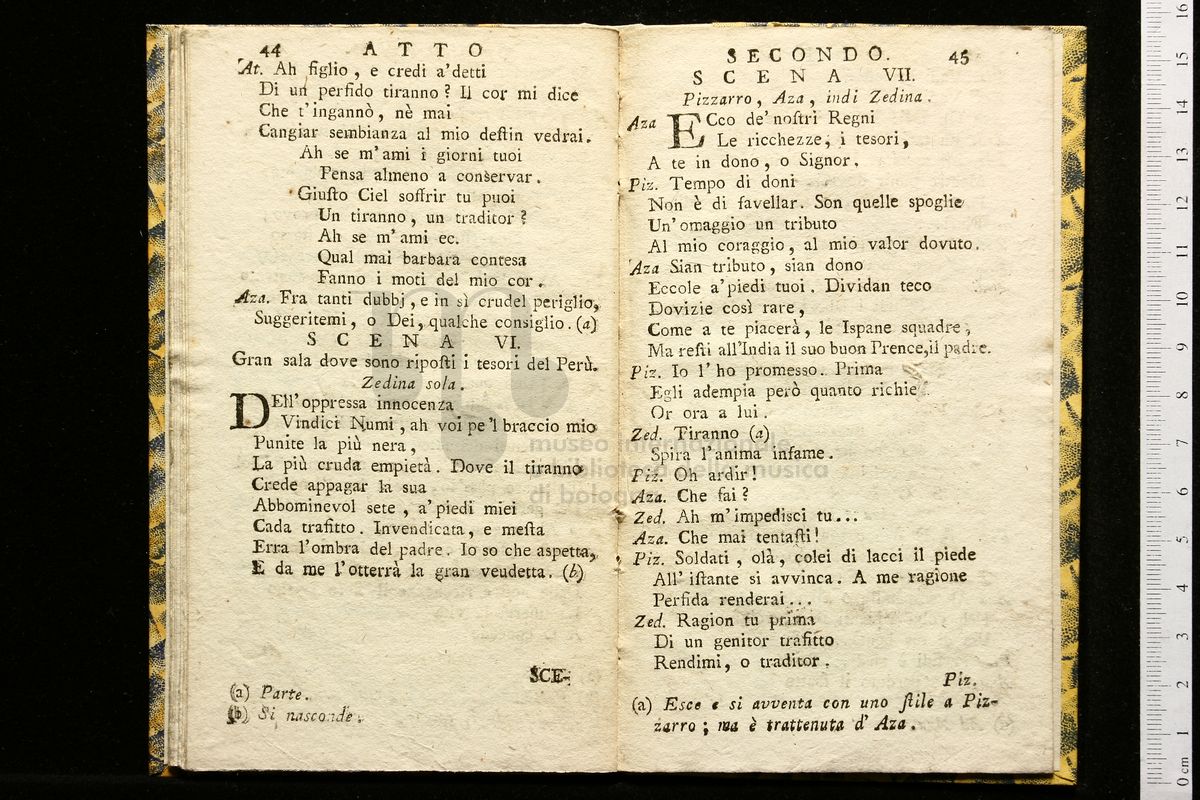 44 ATTO
At. Ah figlio, e credi a'detti
Di un perfido tiranno? Il cor mi dice
Che t'ingannò, nè mai
Cangiar sembianza al mio deſtin vedrai.
Ah se m'ami i giorni tuoi
Pensa almeno a conservar.
Giuſto Ciel soffrir tu puoi
Un tiranno, un traditor?
Ah se m'ami ec.
Qual mai barbara contesa
Fanno i moti del mio cor.
Aza. Fra tanti dubbj, e in sì crudel periglio,
Suggeritemi, o Dei, qualche consiglio. (a)
SCENA VI.
Gran sala dove sono ripoſti i tesori del Perù.
Zedina sola.
DEll'oppressa innocenza
Vindici Numi, ah voi pe'l braccio mio
Punite la più nera,
La più cruda empietà. Dove il tiranno
Crede appagar la sua
Abbominevol sete, a'piedi miei
Cada trafitto. Invendicata, e meſta
Erra l'ombra del padre. Io so che aspetta,
E da me l'otterrà la gran veudetta. (b)
SCE-
(a) Parte.
(b) Si nasconde.
SECONDO. 45
SCENA VII.
Pizzarro, Aza, indi Zedina.
Aza ECco de'noſtri Regni
Le ricchezze, i tesori,
A te in dono, o Signor.
Piz. Tempo di doni
Non è di favellar. Son quelle spoglie
Un'omaggio un tributo
Al mio coraggio, al mio valor dovuto.
Aza Sian tributo, sian dono
Eccole a'piedi tuoi. Dividan teco
Dovizie così rare,
Come a te piacerà, le Ispane squadre;
Ma reſti all'India il suo buon Prence, il padre.
Piz. Io l'ho promesso. Prima
Egli adempia però quanto
Or ora a lui.
Zed. Tiranno (a)
Spira l'anima infame.
Piz. Oh ardir!
Aza. Che fai?
Zed. Ah m'impedisci tu...
Aza. Che mai tentaſti!
Piz. Soldati, olà, colei di lacci il piede
All'iſtante si avvinca. A me ragione
Perfida renderai...
Zed. Ragion tu prima
Di un genitor trafitto
Rendimi, o traditor.
Piz.
(a) Esce e si avventa con uno ſtile a Piz-
zarro; ma è trattenuta d'Aza.
museo internazionale
e biblioteca della musica
di bologna
16
15
14
13
12
11
10
9
8
7
6
5
4
3
2
1
0 cm